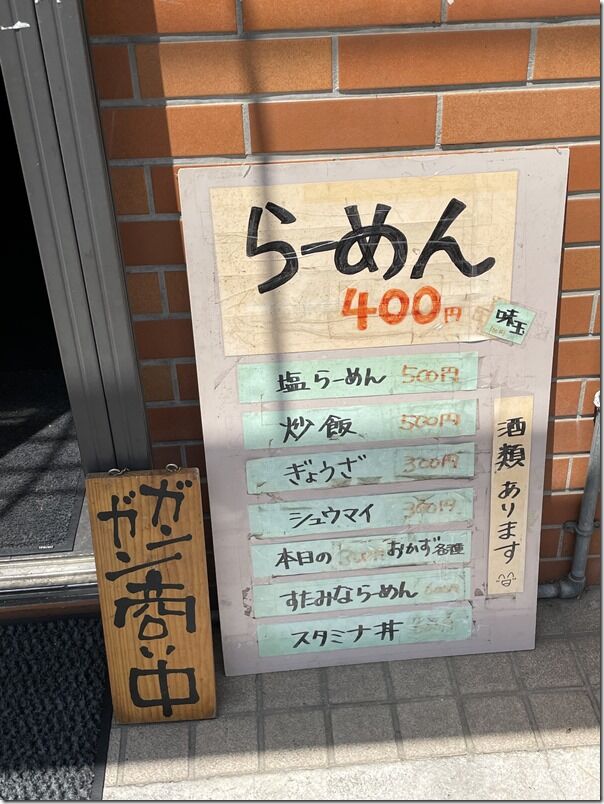 らーめん
400円
味玉
塩らーめん 500円
炒飯 500円
ぎょうざ 300円
シュウマイ 300円
本日の おかず各種
すたみならーめん
スタミナ丼
酒類あります
ガンガン商い中